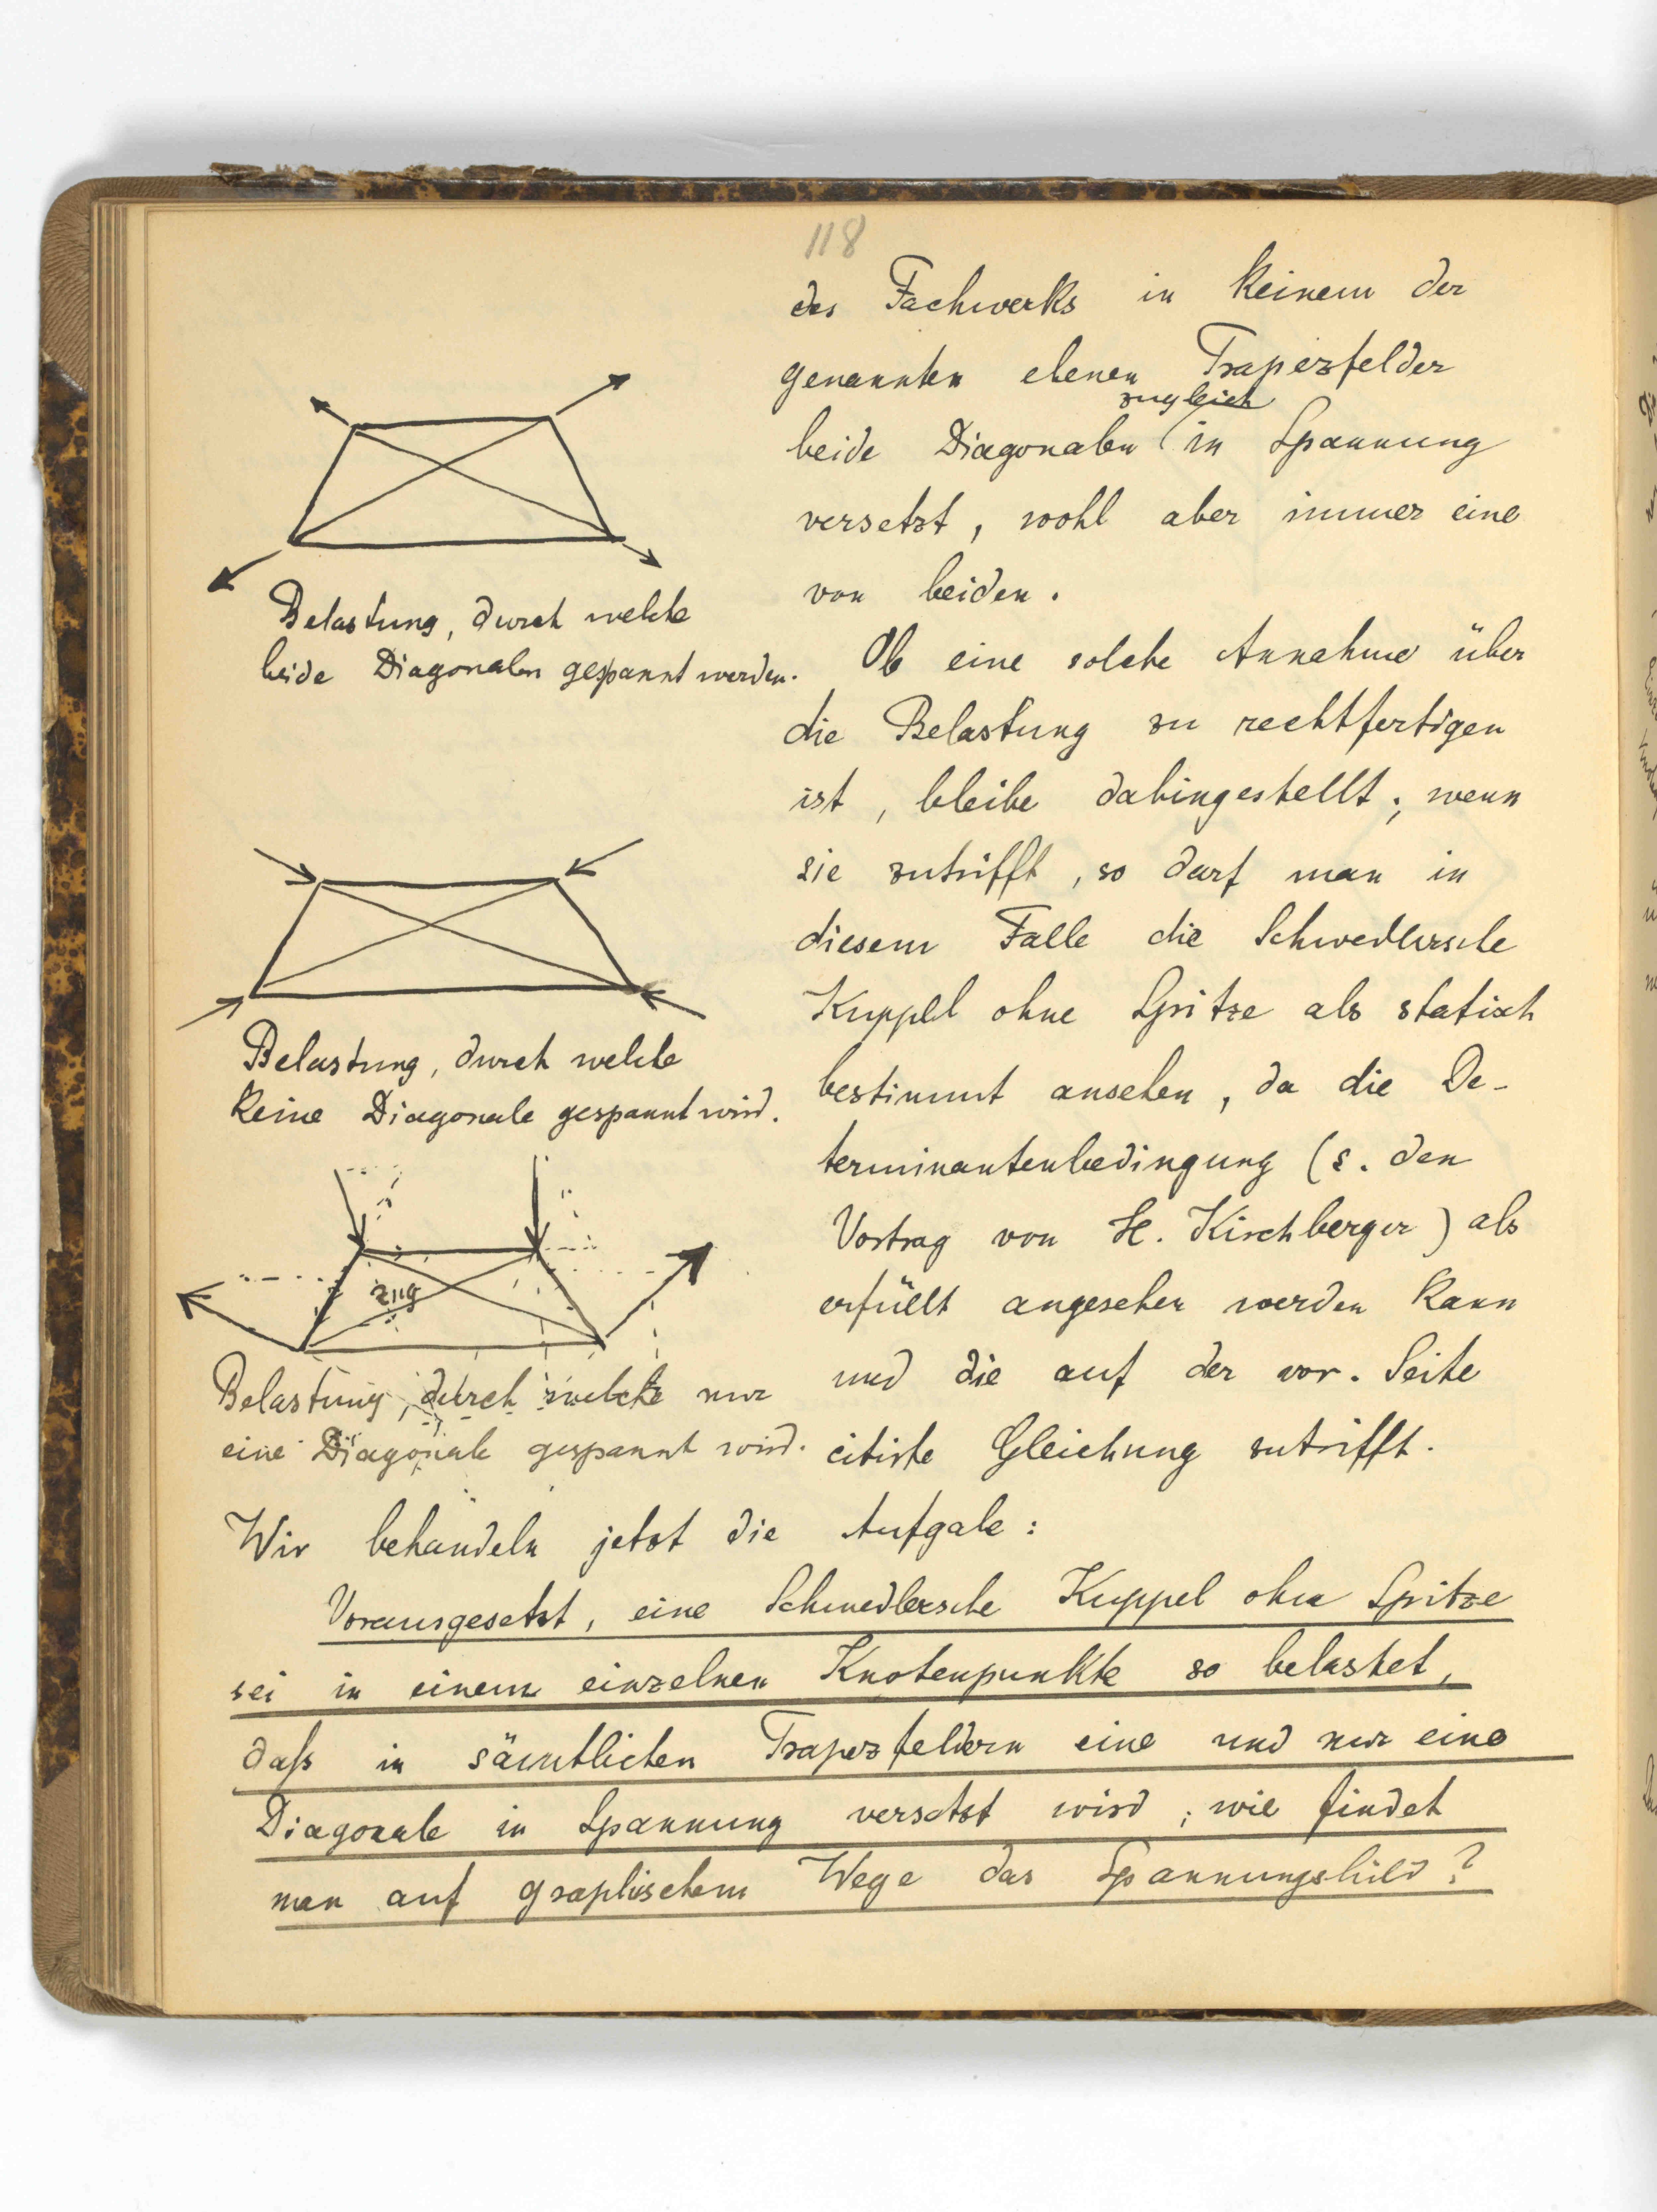 118
des Fachwerks in keinem der
genannten ebenen Trapezfelder
zugleich
beide Diagonalen (in Spannung
versetzt, wohl aber immer eine
von beiden.
Ob eine solche Annahme über
die Belastung zu rechtfertigen
ist, bleibe dahingestellt; wenn
sie zutrifft, so darf man in
diesem Falle die Schwedlersche
Kuppel ohne Spitze als statisch
bestimmt ansehen, da die De-
terminantenbedingung (s. den
Vortrag von H. Kirchberger) als
erfüllt angesehen werden kann
und die auf der vor. Seite
citirte Gleichung zutrifft.
Belastung, durch welche
beide Diagonalen gespannt werden.
Belastung, durch welche
keine Diagonale gespannt wird.
Zug
Belastung, durch welche nur
eine Diagonale gespannt wird.
Wir behandeln jetzt die Aufgabe:
Vorausgesetzt, eine Schwedlersche Kuppel ohne Spitze
sei in einem einzelnen Knotenpunkte so belastet,
daß in sämtlichen Trapezfeldern eine und nur eine
Diagonale in Spannung versetzt wird; wie findet
man auf graphischem Wege das Spannungsbild?